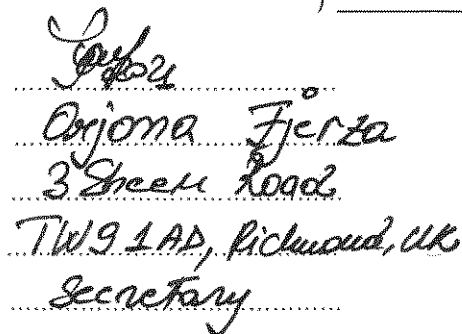 Orjona Fjerza
3 Sheen Road
TW9 1AD, Richmond, UK
Secretary